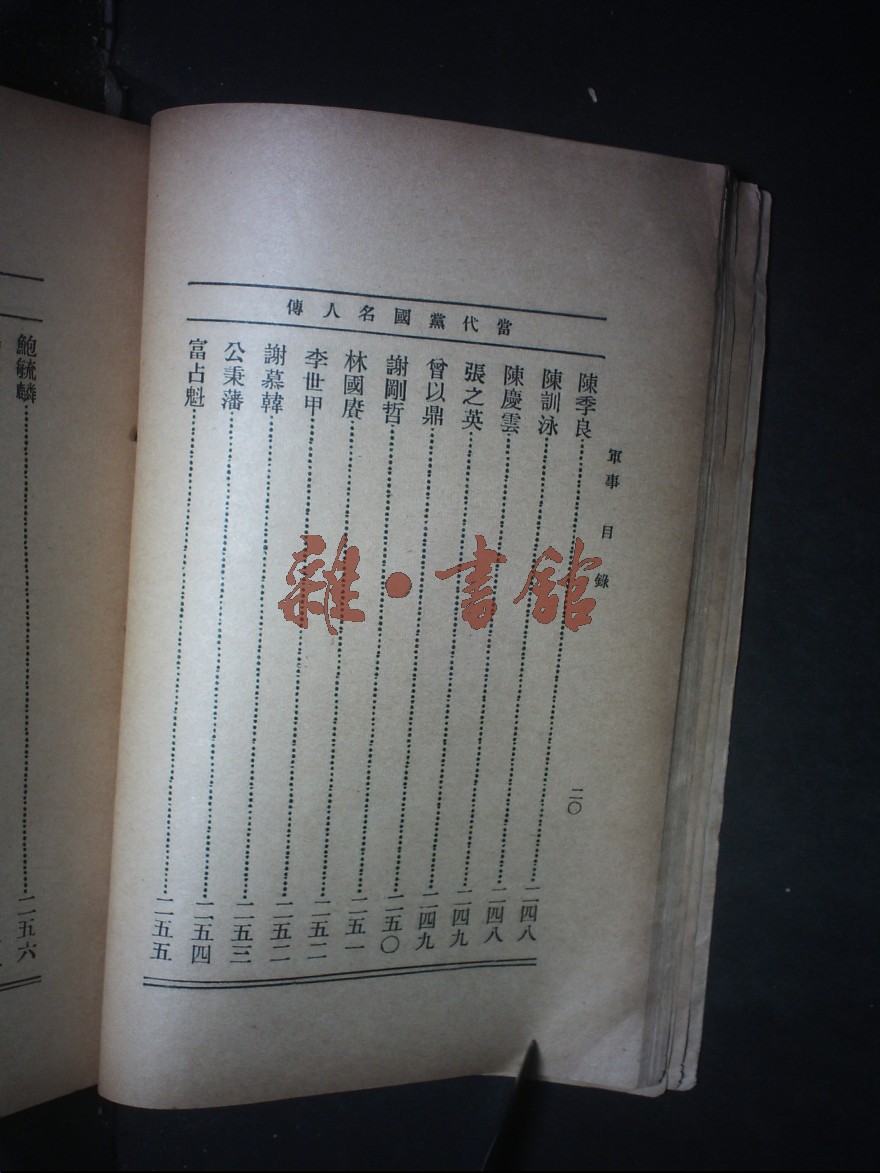 當代黨國名人傳
軍事目錄
二〇
陳季良……二四八
陳訓泳……二四八
陳慶雲……二四九
張之英……二四九
曾以鼎……二五〇
謝剛哲……二五一
林國賡……二五二
李世甲……二五二
謝慕韓……二五三
公秉藩……二五四
富占魁……二五五
鮑毓麟……二五六
雜·書館